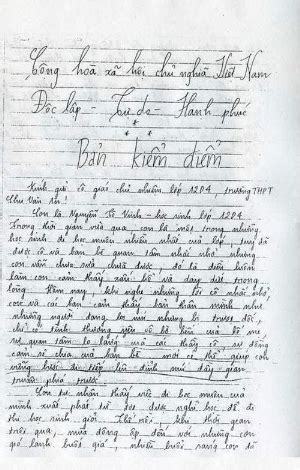 Cộng hoà xã hội chủ nghĩa Việt Nam
Độc lập - Tự do - Hạnh phúc
* * *
Bản kiểm điểm
Kính gửi cô giáo chủ nhiệm lớp 12D4, trường THPT
Chu Văn An!
Con là Nguyễn Tố Vinh - học sinh lớp 12D4
Trong thời gian vừa qua, con là một trong những
học sinh đi học muộn nhiều nhất của lớp, tuy đã
được cô và bạn bè quan tâm nhắc nhở nhưng
con vẫn chưa sửa chữa được, đó là điều khiến
con cảm thấy xấu hổ và day dứt trong
lòng. Hôm nay, khi nghe những lời cô nhắc nhở,
con và các bạn cảm thấy bản thân mình như
những người đang bị trượt dốc,
chỉ có tình thương yêu vô bờ bến của bố mẹ
sự quan tâm lo lắng của các thầy cô, sự động
cảm sẻ chia của bạn bè mới có thể giúp con
vững bước đi tiếp lên đỉnh núi đầy gian
truân phía trước.
Con tự nhận thấy việc đi học muộn của
mình xuất phát từ được nghỉ học để đi
thi học sinh giỏi. Thế rồi, khi thời gian
trôi qua, mùa đông ập đến với những cơn
gió lạnh buốt giá, nhiều buổi sáng con đã